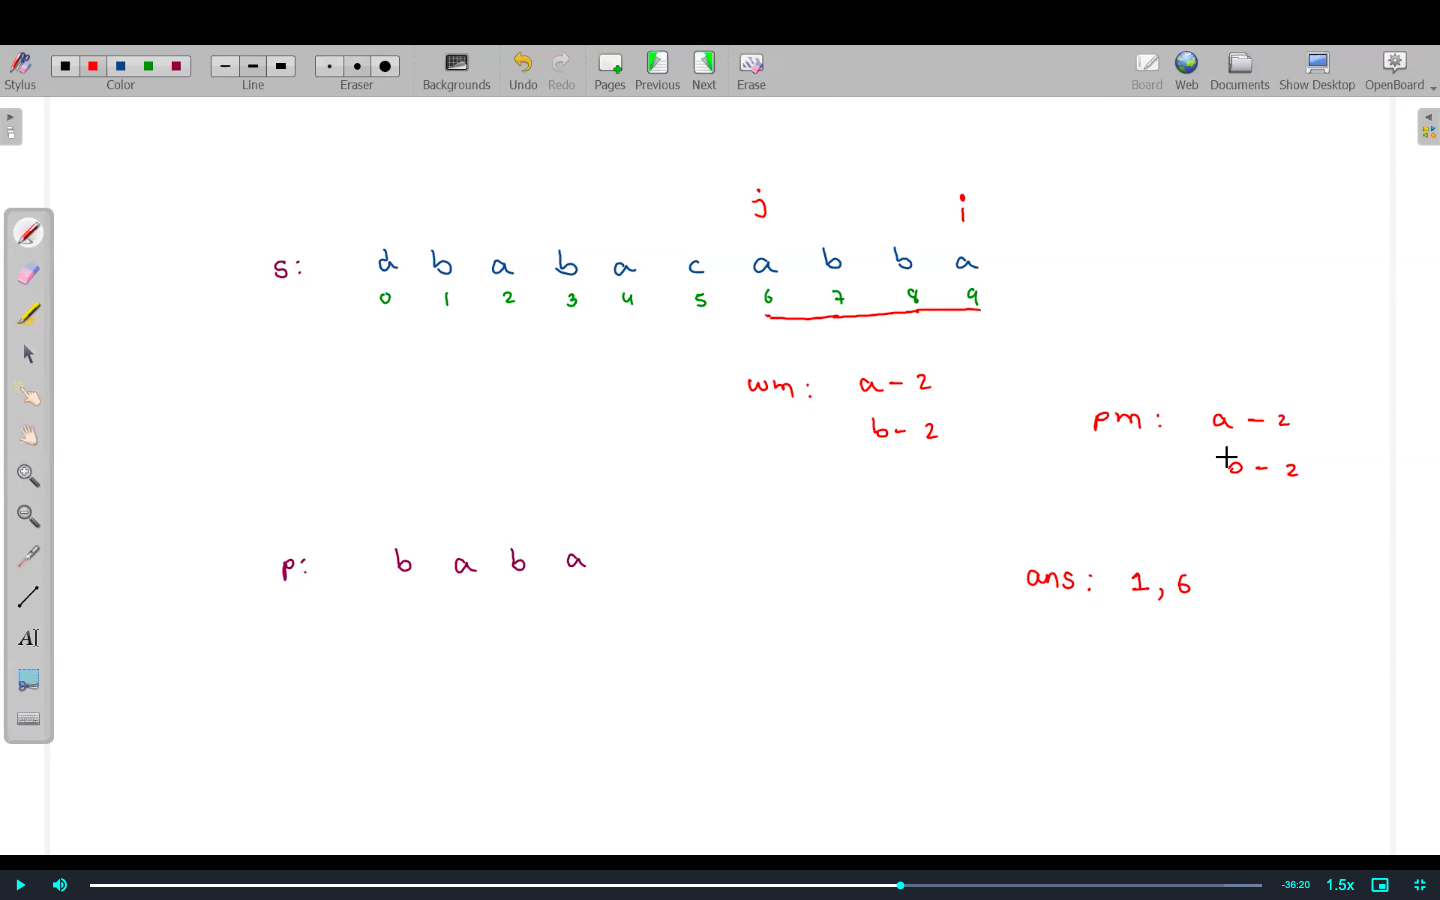 Stylus Color Line Eraser Backgrounds Undo Redo Pages Previous Next Erase Board Web Documents Show Desktop OpenBoard
j i
s: d b a b a c a b b a
0 1 2 3 4 5 6 7 8 9
wm: a - 2
b - 2
pm: a - 2
b - 2
p: b a b a
ans: 1, 6
AI
-36:20 1.5x